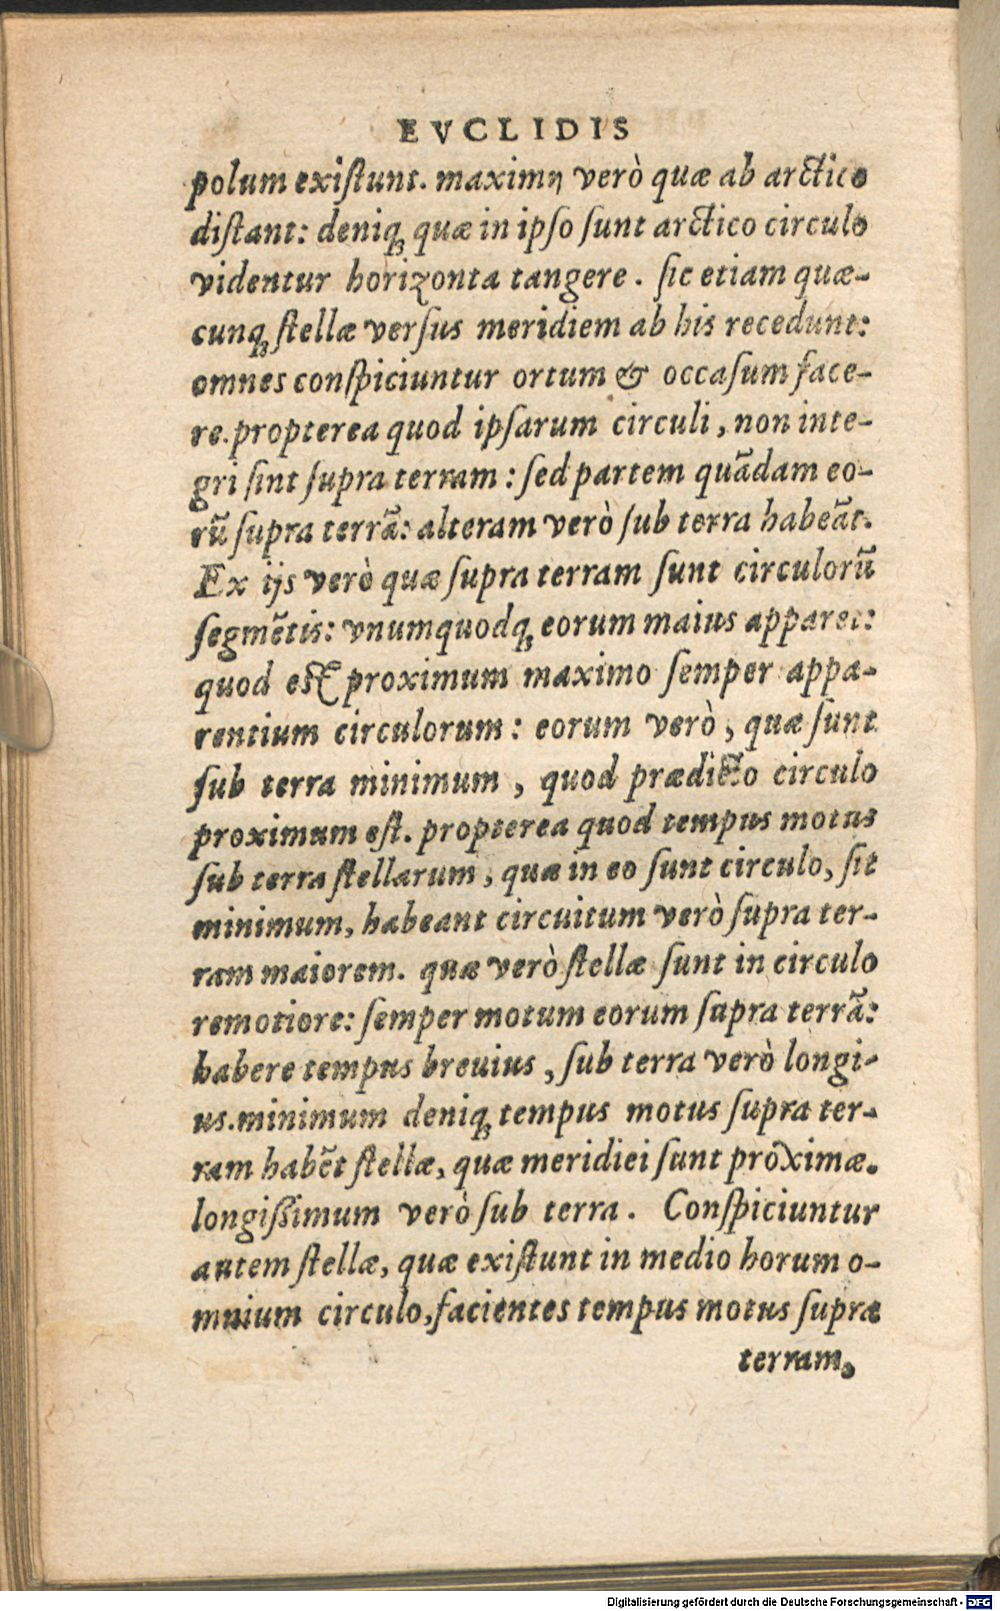 EVCLIDIS
polum exiſtunt. maximη verò quæ ab arctico
diſtant: deniqꝫ quæ in ipſo ſunt arctico circulo
videntur horizonta tangere. ſic etiam quæ-
cunqꝫ ſtellæ verſus meridiem ab his recedunt:
omnes conſpiciuntur ortum & occaſum face-
re. propterea quod ipſarum circuli, non inte-
gri ſint ſupra terram: ſed partem quādam eo-
rū ſupra terrā: alteram verò ſub terra habeāt.
Ex ijs verò quæ ſupra terram ſunt circulorū
ſegmētis: vnumquodqꝫ eorum maius apparet:
quod eſt proximum maximo ſemper appa-
rentium circulorum: eorum verò, quæ ſunt
ſub terra minimum, quod prædicto circulo
proximum eſt. propterea quod tempus motus
ſub terra ſtellarum, quæ in eo ſunt circulo, ſit
minimum, habeant circuitum verò ſupra ter-
ram maiorem. quæ verò ſtellæ ſunt in circulo
remotiore: ſemper motum eorum ſupra terrā:
habere tempus breuius, ſub terra verò longi-
us. minimum deniqꝫ tempus motus ſupra ter-
ram habēt ſtellæ, quæ meridiei ſunt proximæ.
longiſſimum verò ſub terra. Conſpiciuntur
autem ſtellæ, quæ exiſtunt in medio horum o-
mnium circulo, facientes tempus motus ſupra
terram,
Digitalisierung gefördert durch die Deutsche Forschungsgemeinschaft - DFG